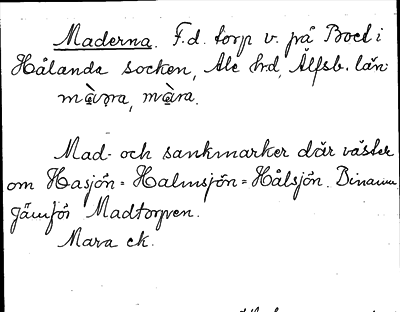 Maderna. F.d. torp v. på Boet i
Hålanda socken, Ale hd, Älfsb. län.
màɐ̯ra, màra.
Mad- och sankmarker där väster
om Hasjön = Halmsjön = Hålsjön. Binamn
Jämför Madtorpen.
Mara ek.